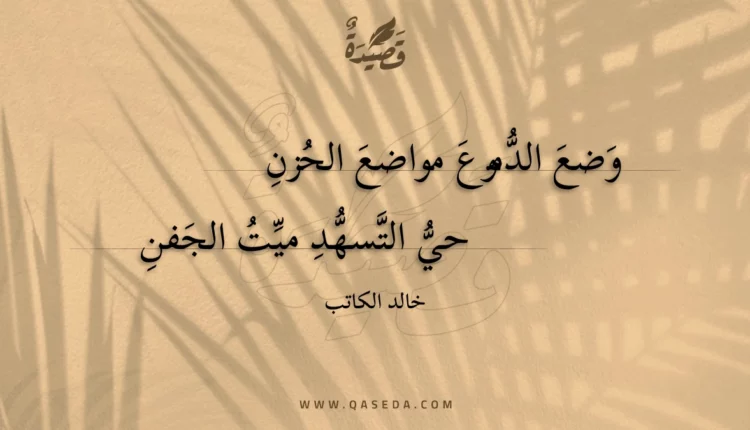 قَصِيْدَةٌ
وَضعَ الدُّموعَ مواضعَ الحُزنِ
حيُّ التَّسهُّدِ ميِّتُ الجَفنِ
خالد الكاتب
WWW.QASEDA.COM